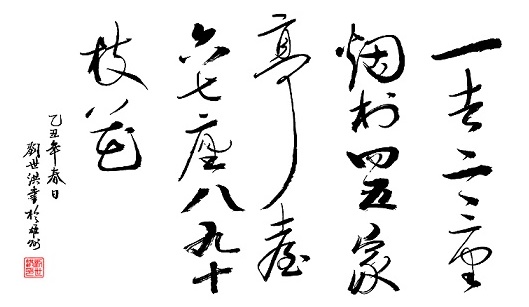 一去二三里
烟村四五家
亭臺
六七座八九十
枝花
乙丑年春日
劉世洪書於